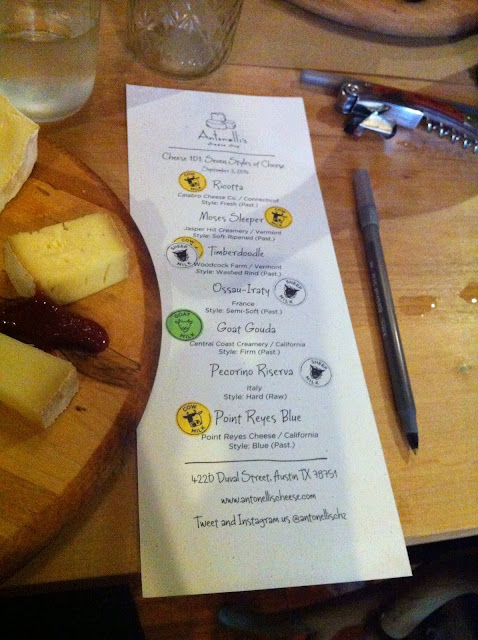 Antonelli's
cheese shop
Cheese 101: Seven Styles of Cheese
September 3, 2015
COW MILK
Ricotta
Calabro Cheese Co. / Connecticut
Style: Fresh (Past.)
Moses Sleeper
COW MILK
Jasper Hill Creamery / Vermont
Style: Soft-Ripened (Past.)
COW
SHEEP MILK
Timberdoodle
Woodcock Farm / Vermont
Style: Washed Rind (Past.)
Ossau-Iraty
SHEEP MILK
France
Style: Semi-Soft (Past.)
GOAT MILK
Goat Gouda
Central Coast Creamery / California
Style: Firm (Past.)
Pecorino Riserva
SHEEP MILK
Italy
Style: Hard (Raw)
COW MILK
Point Reyes Blue
Point Reyes Cheese / California
Style: Blue (Past.)
4220 Duval Street, Austin TX 78751
www.antonellischeese.com
Tweet and Instagram us @antonellischz